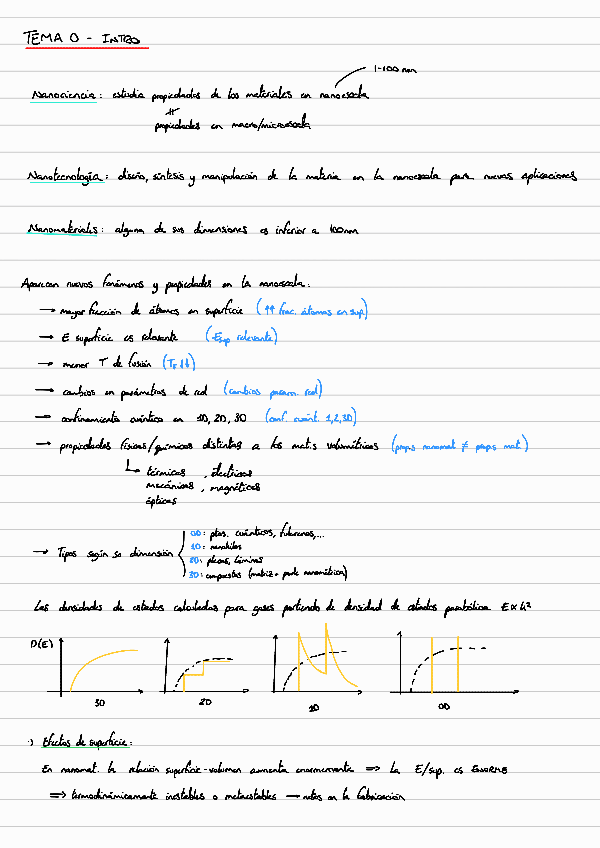 TEMA 0 - INTRO
1-100 nm
Nanociencia: estudia propiedades de los materiales en nanoescala
≠
propiedades en macro/microescala
Nanotecnología: diseño, síntesis y manipulación de la materia en la nanoescala para nuevas aplicaciones
Nanomateriales: alguna de sus dimensiones es inferior a 100nm
Aparecen nuevos fenómenos y propiedades en la nanoescala:
→ mayor fracción de átomos en superficie (↑↑ frac. átomos en sup)
→ E superficie es relevante (Esup relevante)
→ menor T de fusión (TF ↓↓)
→ cambios en parámetros de red (cambios param. red)
→ confinamiento cuántico en 1D, 2D, 3D (conf. cuánt. 1,2,3D)
→ propiedades físicas/químicas distintas a los mat.s volumétricos (props nanomat ≠ props mat)
↳ térmicas, eléctricas
mecánicas, magnéticas
ópticas
→ Tipos según su dimensión
0D: ptos. cuánticos, fulerenos,...
1D: nanohilos
2D: placas, láminas
3D: compuestos (matriz + parte nanométrica)
Las densidades de estados calculadas para gases partiendo de densidad de estados parabólica E∝k²
D(E)
3D 2D 1D 0D
·) Efectos de superficie:
En nanomat. la relación superficie-volumen aumenta enormemente ⇒ la E/sup. es ENORME
⇒ termodinámicamente inestables o metaestables → retos en la fabricación